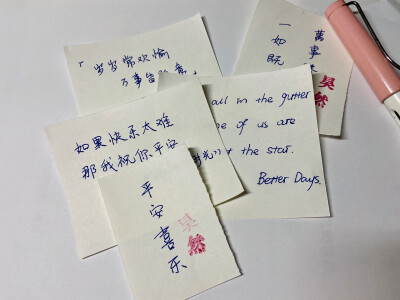 「岁岁常欢愉
万事皆
萬事
一如既
吴然
all in the gutter
of us are
the star.
Better Days.
如果快乐太难
那我祝你平安
平安喜乐
吴然